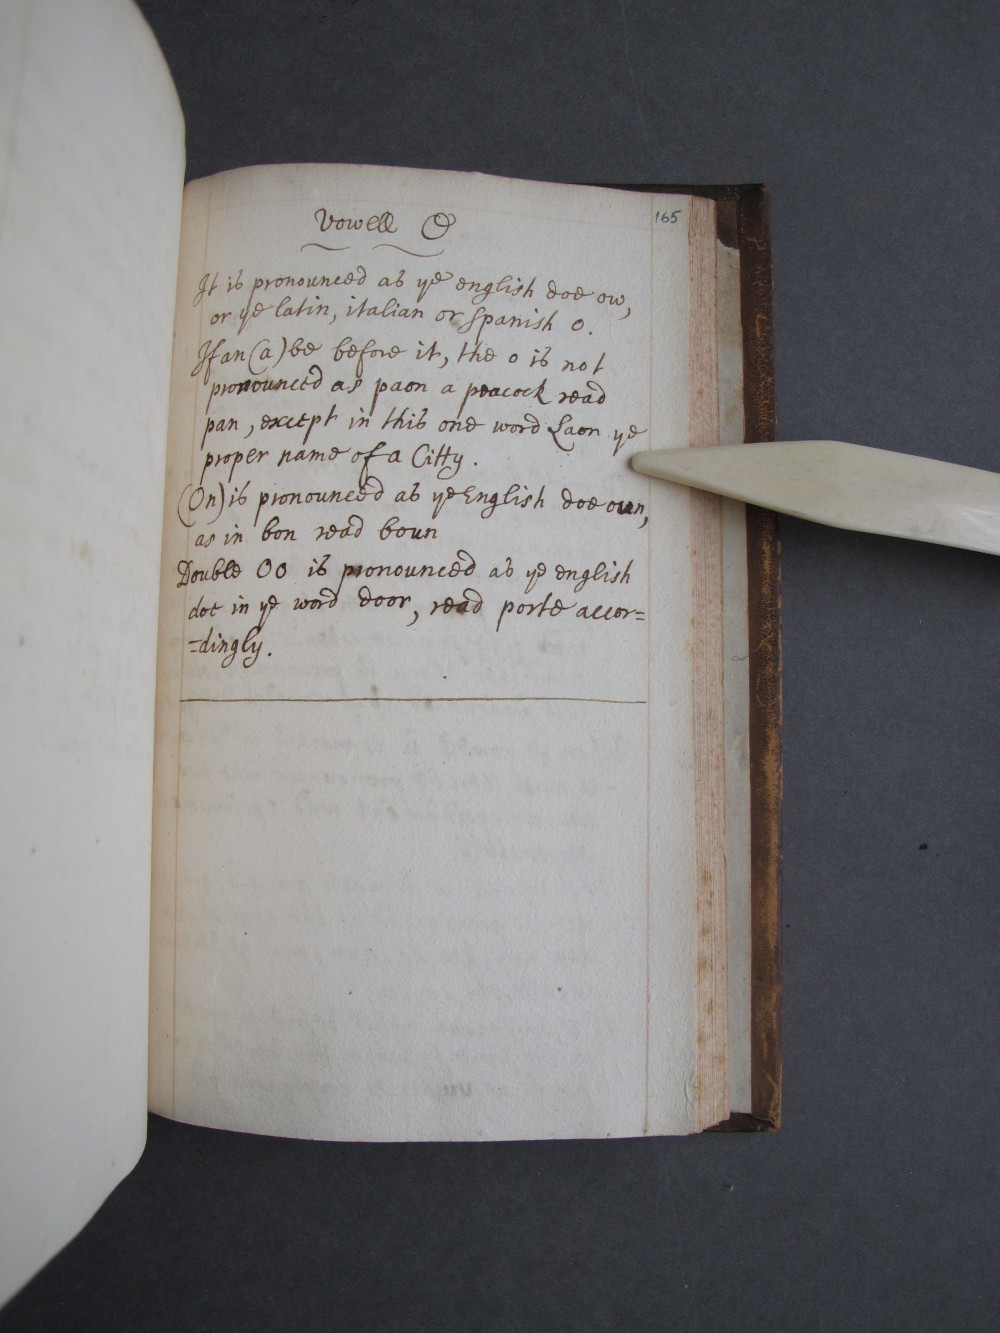 165
Vowell O
It is pronounced as ye english doe ow,
or ye latin, italian or Spanish o.
If an (a) be before it, the o is not
pronounced as paon a peacock read
pan, except in this one word Laon ye
proper name of a Citty.
(On) is pronounced as ye English doe oun,
as in bon read boun
Double Oo is pronounced as ye english
doe in ye word door, read porte accor=
=dingly.